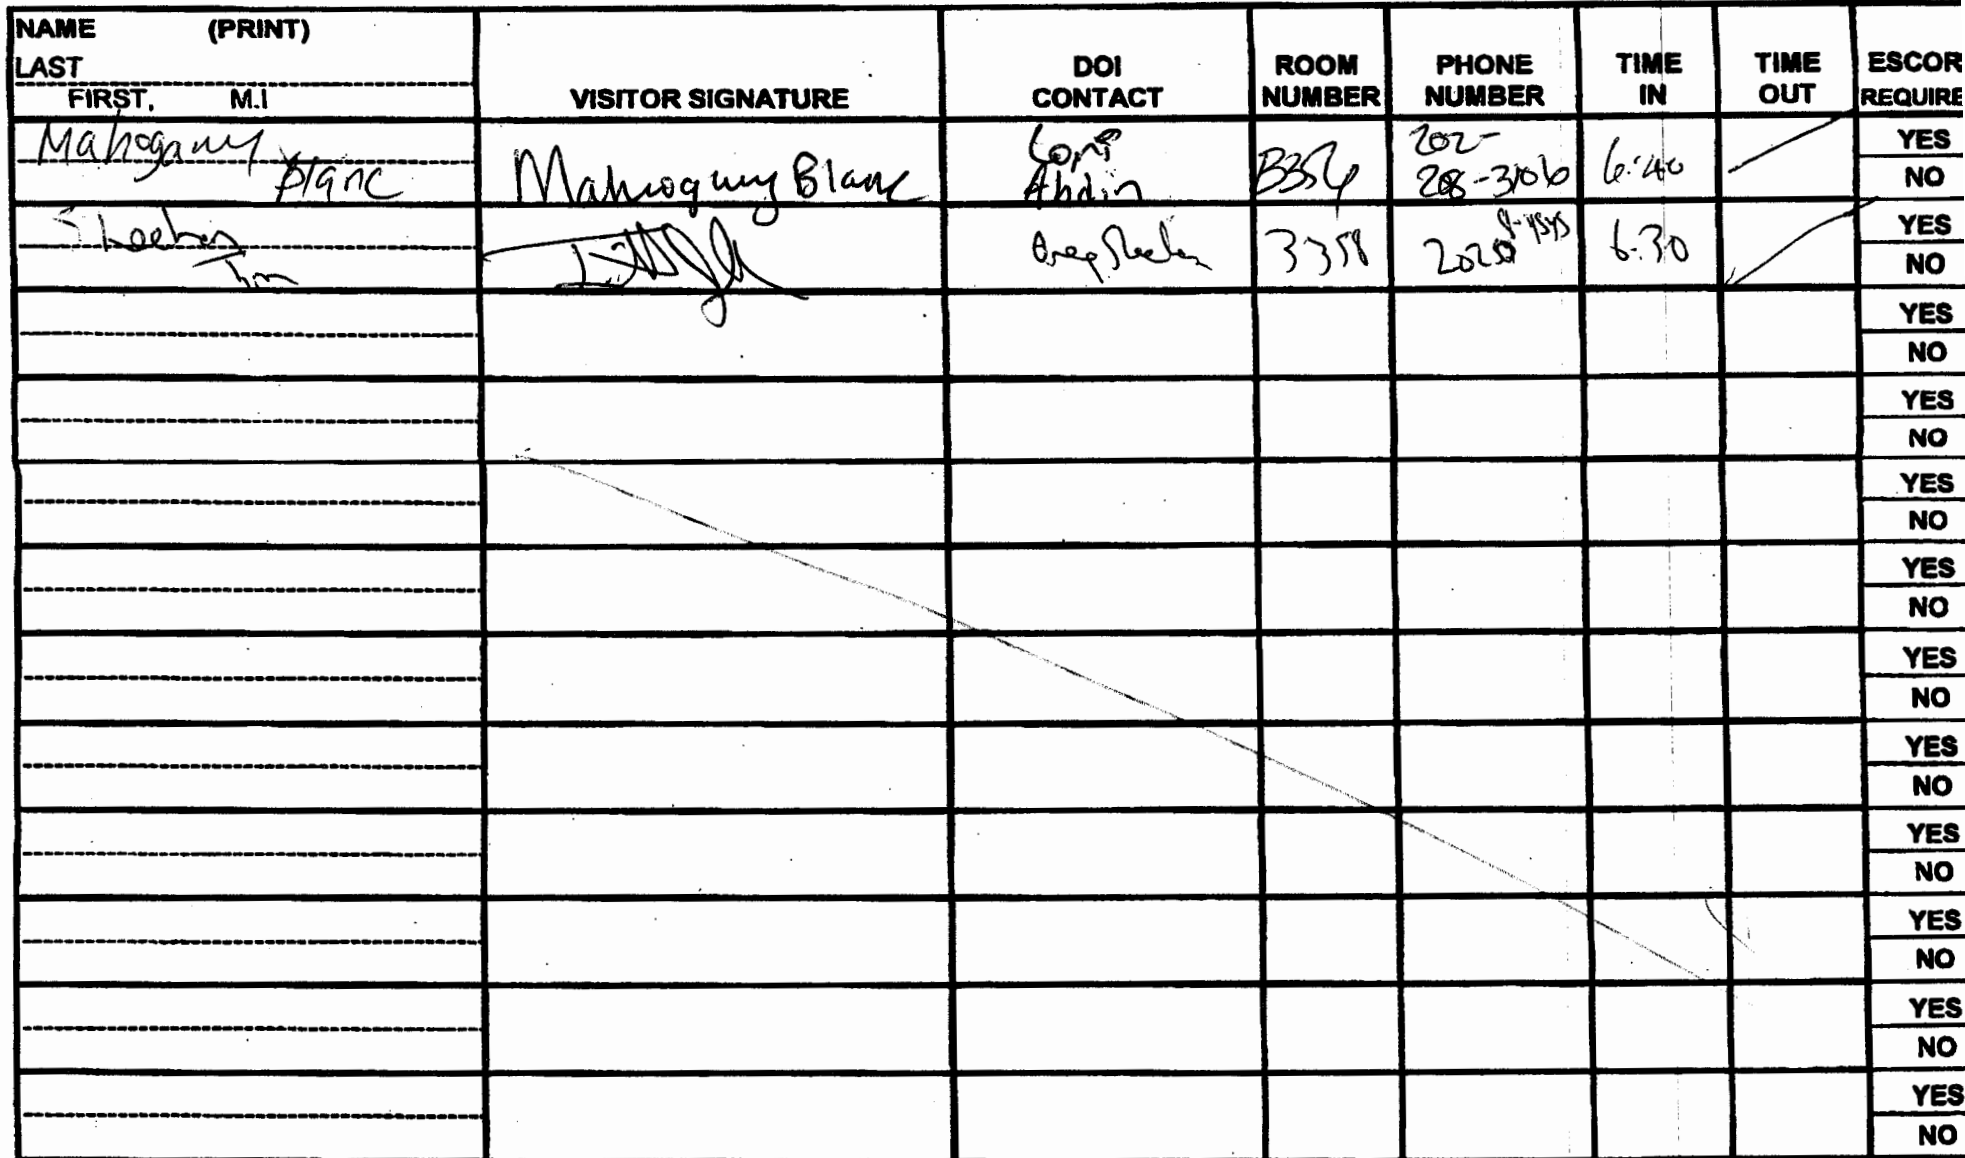 NAME (PRINT)
LAST
FIRST, M.I
VISITOR SIGNATURE
DOI
CONTACT
ROOM
NUMBER
PHONE
NUMBER
TIME
IN
TIME
OUT
ESCOR
REQUIRE
Mahogany
Blanc
Mahogany Blanc
Lori
Abdin
202-
208-3106
6:40
YES
NO
Sheehan
Tim
Greg Sheehan
3358
6:30
YES
NO
YES
NO
YES
NO
YES
NO
YES
NO
YES
NO
YES
NO
YES
NO
YES
NO
YES
NO
YES
NO